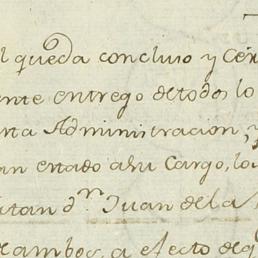 l queda concluso y Cer
ente entrego detodos lo
nta Administracion, y
an estado ahu Cargo, lo
itan dn Juan dela
ambos, a efecto deq